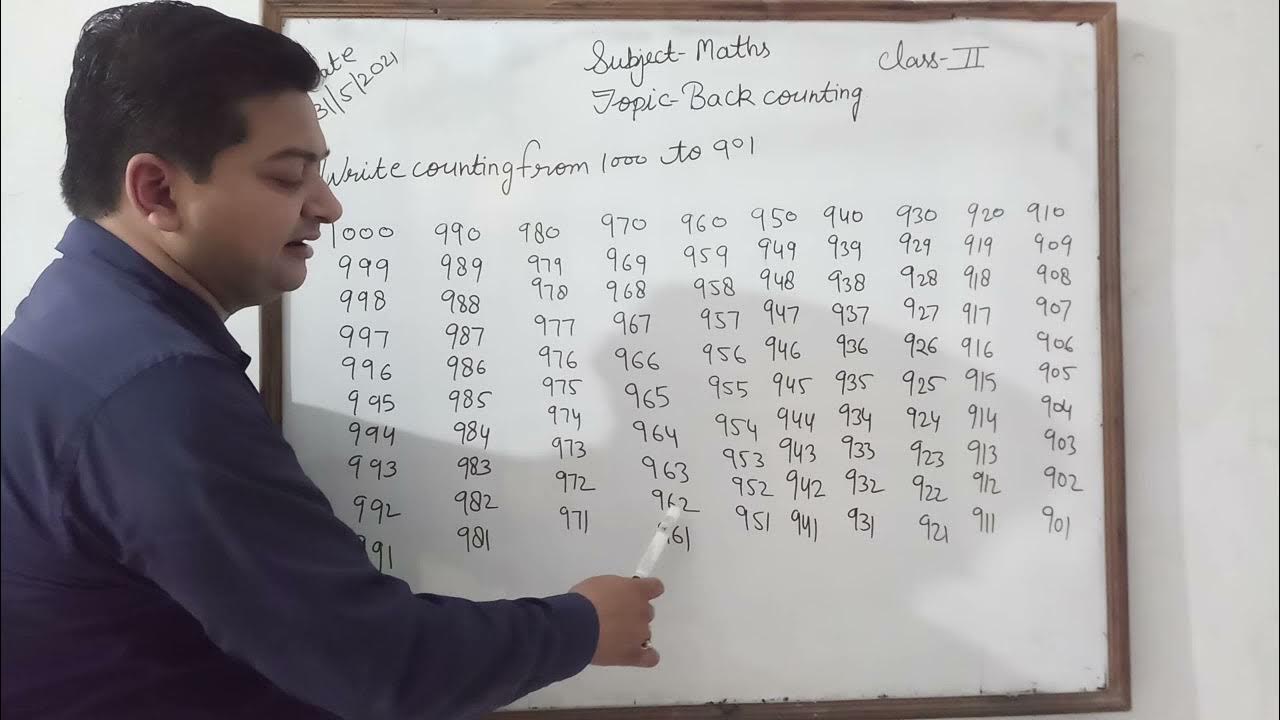 Subject- Maths Class- II
31/5/2021
Topic- Back counting
Write counting from 1000 to 901
1000 990 980 970 960 950 940 930 920 910
999 989 979 969 959 949 939 929 919 909
998 988 978 968 958 948 938 928 918 908
997 987 977 967 957 947 937 927 917 907
996 986 976 966 956 946 936 926 916 906
995 985 975 965 955 945 935 925 915 905
994 984 974 964 954 944 934 924 914 904
993 983 973 963 953 943 933 923 913 903
992 982 972 962 952 942 932 922 912 902
91 981 971 61 951 941 931 921 911 901